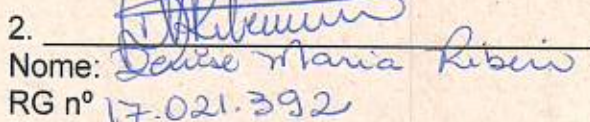 2.
Nome: Denise Maria Ribeiro
RG nº 17.021.392